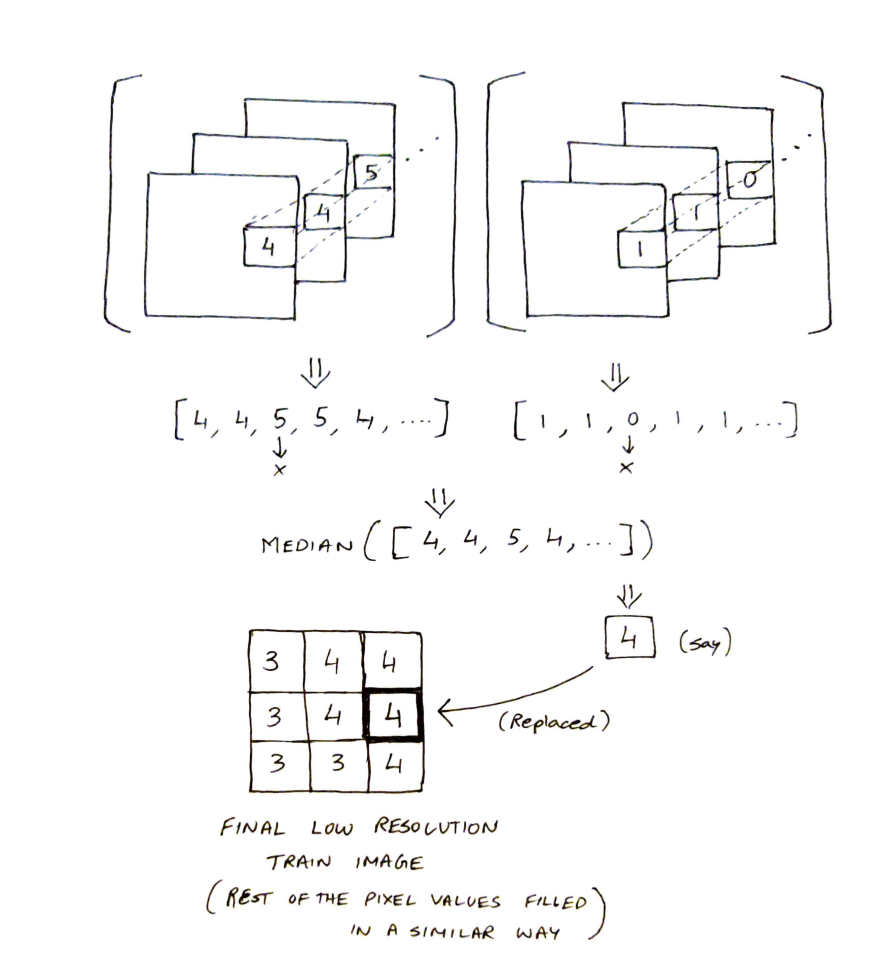 5 0
4 1
4 1
[4, 4, 5, 5, 4, ....] [1, 1, 0, 1, 1, ...]
x x
MEDIAN ([4, 4, 5, 4, ...])
4 (say)
3 4 4
3 4 4
(Replaced)
3 3 4
FINAL LOW RESOLUTION
TRAIN IMAGE
(REST OF THE PIXEL VALUES FILLED
IN A SIMILAR WAY)